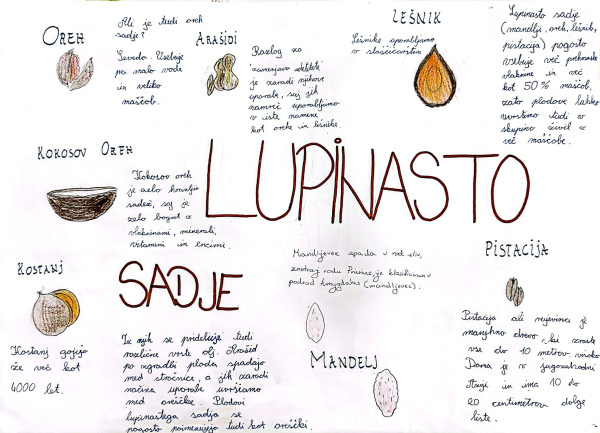 OREH
Ali je tudi oreh
sadje?
Seveda. Vsebuje
pa malo vode
in veliko
maščob.
ARAŠIDI
Razlog za
je zaradi njihove
uporabe, saj jih
namreč uporabljamo
v iste namene
kot orehe in lešnike.
LEŠNIK
Lešnike uporabljamo
v slaščičarstvu
Lupinasto sadje
(mandlji, oreh, lešnik,
pistacija) pogosto
vsebuje več prehranske
vlaknine in več
kot 50 % maščob,
zato plodove lahko
uvrstimo tudi v
skupino živil z
več maščobe.
KOKOSOV OREH
Kokosov oreh
je zelo hranljiv
sadež, saj je
zelo bogat z
vlakninami, minerali,
vitamini in encimi.
LUPINASTO
SADJE
KOSTANJ
Kostanj gojijo
že več kot
4000 let.
Iz njih se pridobiva tudi
različne vrste olj. Arašid
po zgradbi ploda spadajo
med stročnice, a jih zaradi
načina uporabe uvrščamo
med oreščke. Plodovi
lupinastega sadja se
pogosto poimenujejo tudi kot oreščki.
Mandljevec spada v rod sliv,
znotraj rodu Prunus, je klasificiran v
podrod Amygdalus (mandljevec).
MANDELJ
PISTACIJA
Pistacija ali
manjhno drevo, ki zraste
vse do 10 metrov visoko.
Doma je v jugozahodni
Aziji in ima 10 do
20 centimetrov dolge
liste.